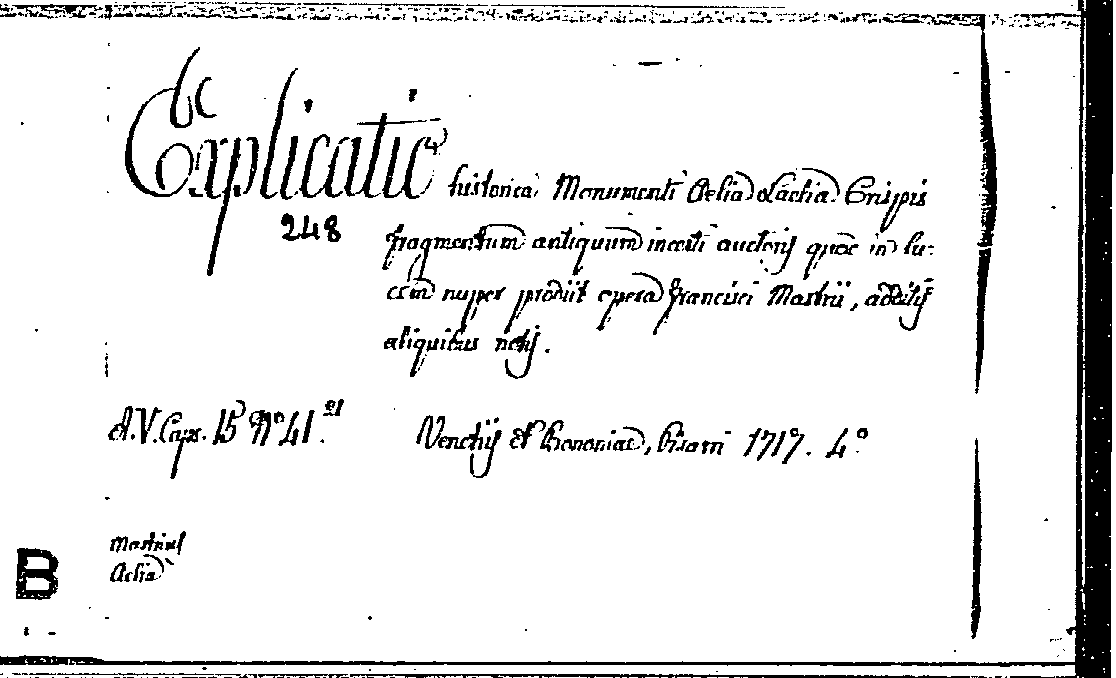 bc
Explicatio historica Monumenti Aelia Laelia Crispis
248
fragmentum antiquum incerti auctoris quod in lu:
cem nuper prodiit opera Francisci Mastrii, additis
aliquibus notis.
A.V. Caps. 15 N° 41.
Venetijs et Bononiae, Pisarri 1717. 4°
Mastrius
Aelia
B